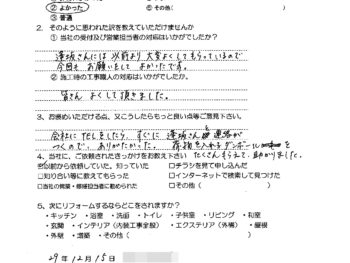 ② よかった ⑤ その他(
③ 普通
2．そのように思われた訳を教えていただけませんか
① 当社の受付及び営業担当者の対応はいかがでしたか?
さんには以前より大変よくしてもらっているので
今回もお願いしまして よかったです。
② 施工時の工事職人の対応はいかがでしたか?
皆さん よくして頂きました。
3．お褒めいただける点、又こうしたらもっと良い点等ご意見下さい。
会社にTELしましたら、すぐに さん 連絡が
つくので、ありがたかった。 荷物を入れるダンボール
4．当社に、ご依頼されたきっかけをお教え下さい たくさんもらえて、助かりました。
以前から依頼していた、知っていた □チラシを見て申し込んだ
□知り合い等に教えてもらった □インターネットで検索して見つけた
□当社の営業・修繕担当者に勧められた □その他(
5．次にリフォームするならどこをされますか?
・キッチン ・浴室 ・洗面 ・トイレ ・子供室 ・リビング ・和室
・玄関 ・インテリア(内装工事全般) ・エクステリア(外構) ・屋根
・外壁 ・増築 ・その他(
29年12月15日